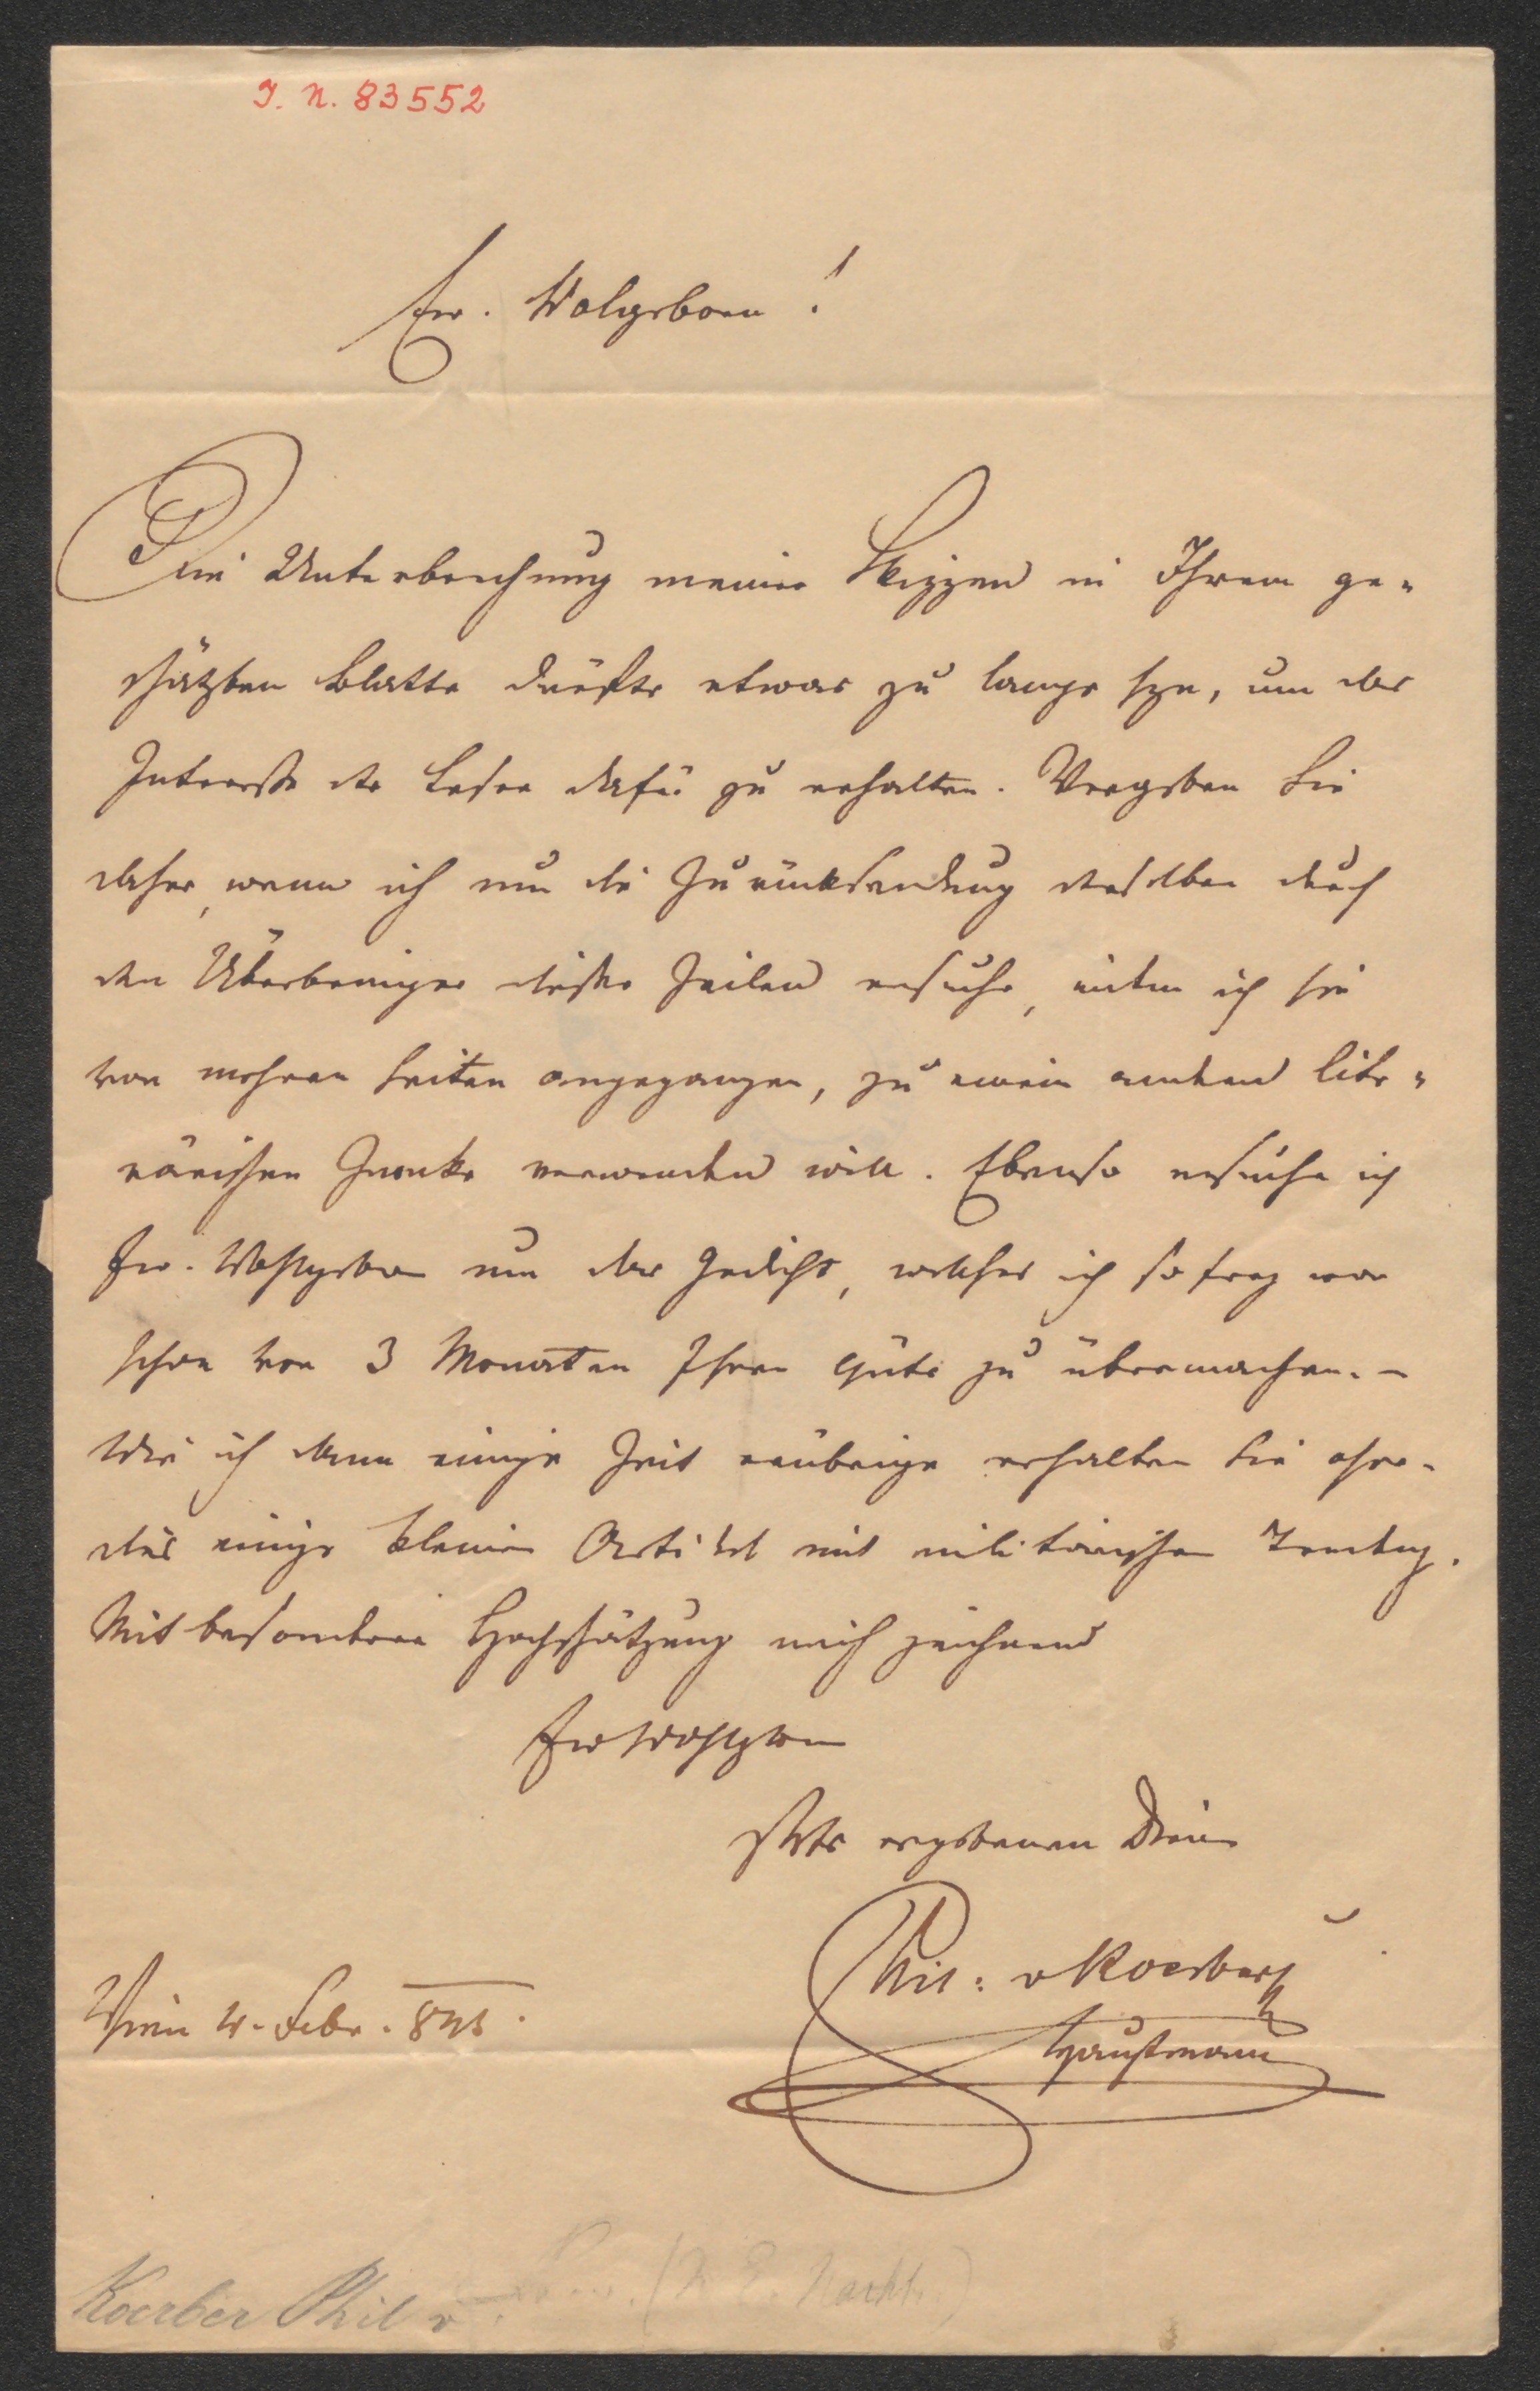 I. N. 83552
Ew. Wolgeborn!
Die Unterbrechung meiner Skizzen in Ihrem ge-
schätzten Blatte dürfte etwas zu lange seyn, um das
Interesse der Leser dafür zu erhalten. Vergeben Sie
daher, wenn ich um die Zurücksendung derselben durch
den Überbringer dieser Zeilen ersuche, indem ich sie
von mehren Seiten angegangen, zu einem andern lite-
rärischen Zwecke verwenden will. Ebenso ersuche ich
Ew. Wohlgeborn um das Gedicht, welches ich so frey war
schon vor 3 Monaten Ihrer Güte zu übermachen. –
Wie ich dann einige Zeit erübrige erhalten Sie ohne-
dies einige kleine Artikel mit militärischer Tendenz.
Mit besonderer Hochschätzung mich zeichnend
Ew Wohlgeborn
stets ergebenen Diener
Phil: v Koerber
Hauptmann
Wien 4. Febr. 843.
Koerber Phil v.